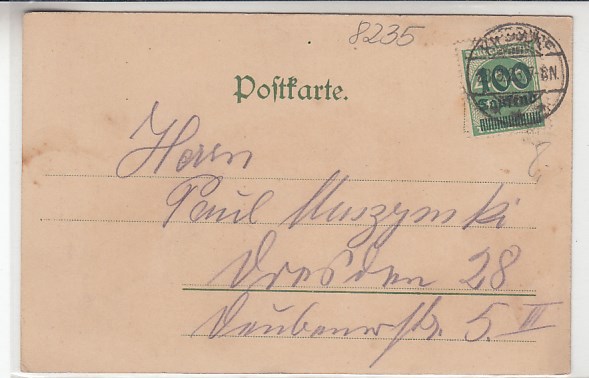 8235
100
Tausend
-8N.
Postkarte.
Herrn
8
Paul Muszynski
Dresden 28
Deubenerstr. 5. III